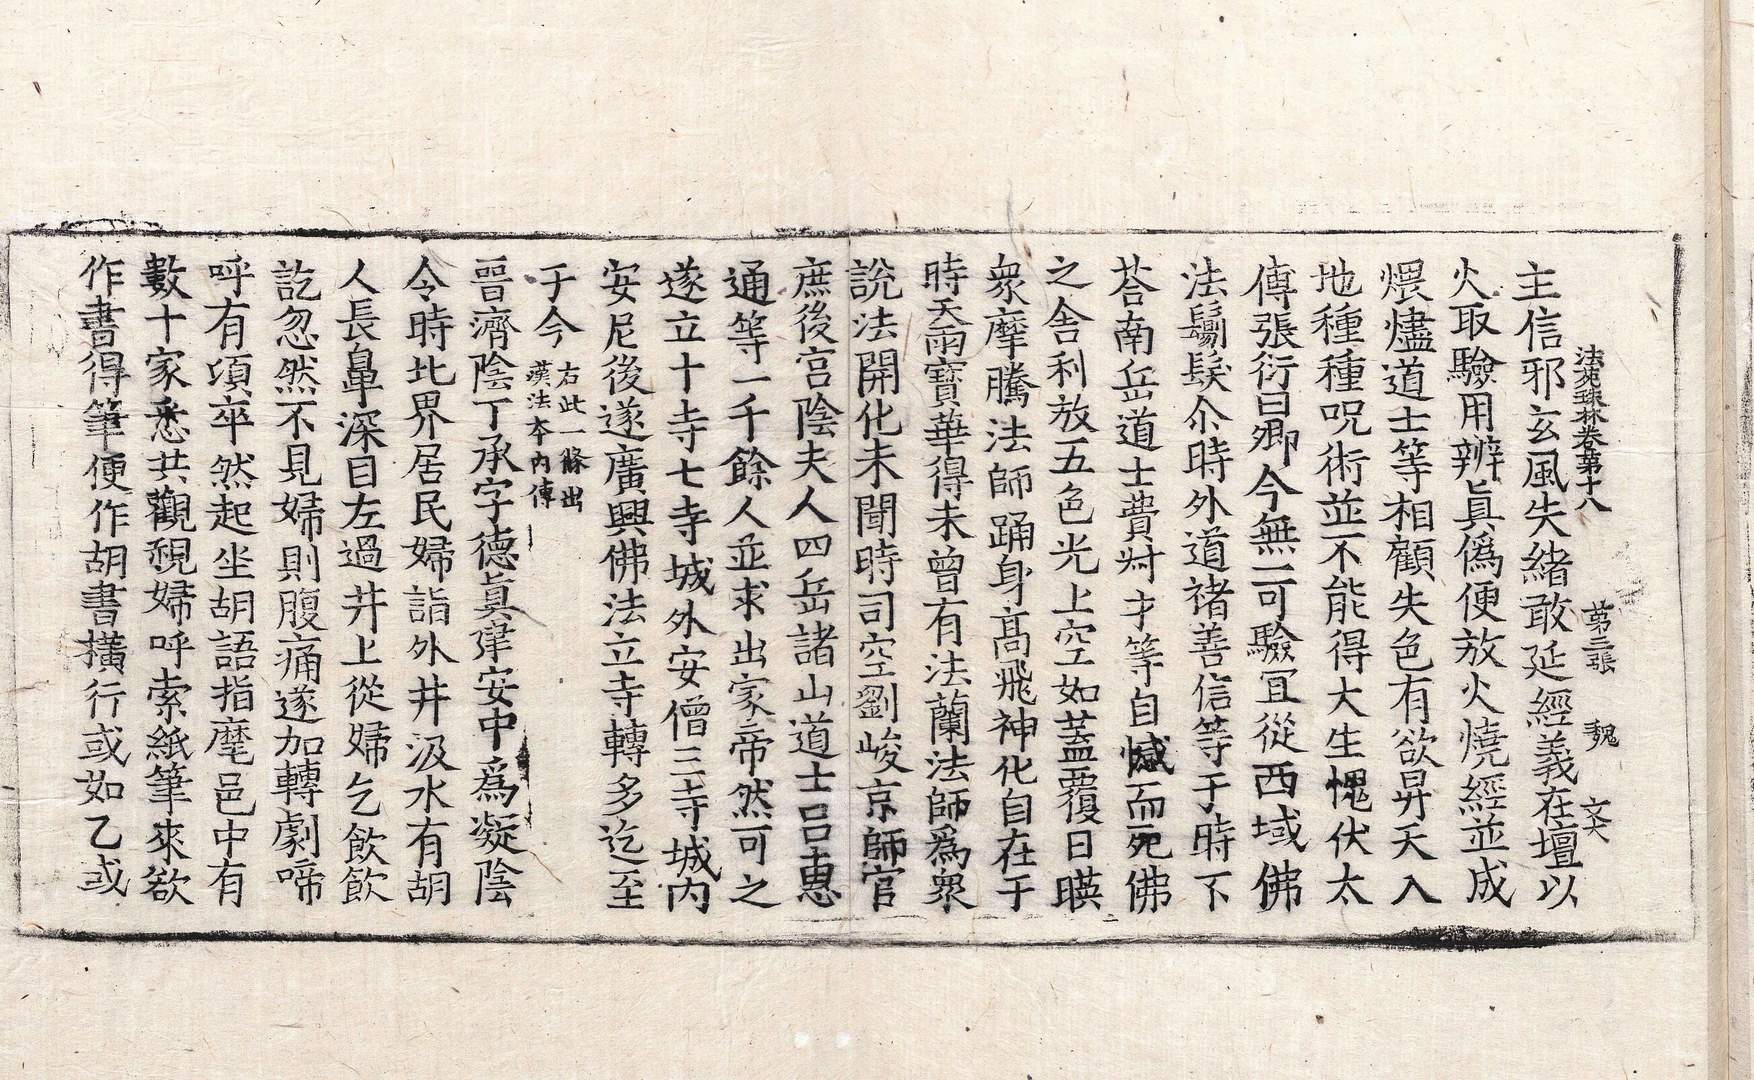 法苑珠林卷第十八 第三張 魏 文大
主信邪玄風失緒敢延經義在壇以
火取驗用辨眞僞便放火燒經並成
煨燼道士等相顧失色有欲昇天入
地種種呪術並不能得大生愧伏太
傅張衍曰卿今無一可驗冝從西域佛
法鬀髮尒時外道褚善信等于時不
荅南岳道士費才等自憾而死佛
之舍利放五色光上空如蓋覆日暎
衆摩騰法師踊身高飛神化自在于
時天雨寶華得未曾有法蘭法師爲衆
說法開化未聞時司空劉峻京師官
庶後宫陰夫人四岳諸山道士吕惠
通等一千餘人並求出家帝然可之
遂立十寺七寺城外安僧三寺城内
安尼後遂廣興佛法立寺轉多迄至
于今
右此一條出
漢法本内傳
晉濟陰丁承字德眞建安中爲凝陰
令時北界居民婦詣外井汲水有胡
人長鼻深目左過井上從婦乞飮飮
訖忽然不見婦則腹痛遂加轉劇啼
呼有頃卒然起坐胡語指麾邑中有
數十家悉共觀視婦呼索紙筆來欲
作書得筆便作胡書橫行或如乙或